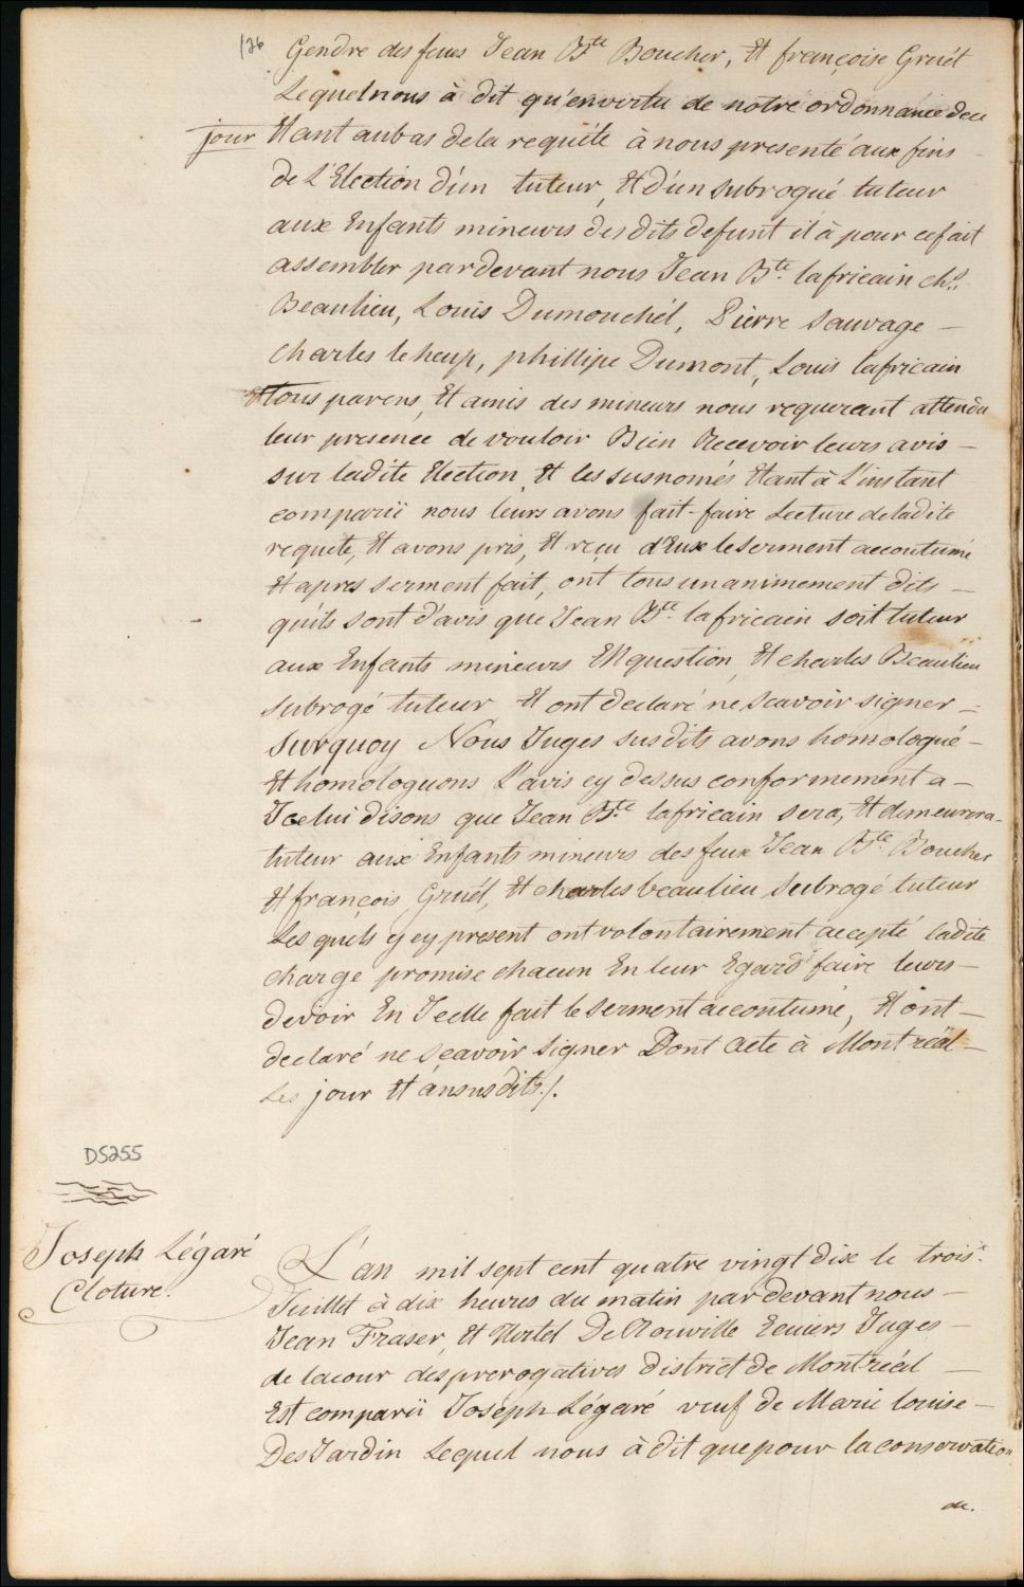 126
Gendre des feues Jean Bte Boucher, Et françoise Gruét
Lequel nous à dit qu'envertu de notre ordonnance de ce
jour Etant aubas dela requête à nous presenté aux fins
de L'Election d'un tuteur, Et d'un subrogué tuteur
aux Enfants mineurs desdits defunt il à pour cefait
assembler pardevant nous Jean Bte lafricain chs
Beaulieu, Louis Dumouchél, Pierre Sauvage -
Charles leheup, phillipe Dumont, Louis lafricain
Et tous parens, Et amis des mineurs nous requerant attendu
leur presence de vouloir Bien Recevoir leurs avis -
sur ladite Election, Et les susnomés Etant à L'instant
comparü nous leurs avons fait-faire Lecture deladite
requête, Et avons pris, Et reçu d'Eux le serment accoutumé
Et apres serment fait, ont tous unanimement dits -
qu'ils sont d'avis que Jean Bte lafricain soit tuteur
aux Enfants mineurs EN question, Et charles Beaulieu
subrogé tuteur Et ont declaré ne scavoir signer -
Surquoy Nous Juges susdits avons homologué -
Et homologuons L'avis cy dessus conformement a -
Icelui disons que Jean Bte lafricain sera, Et demeurera -
tuteur aux Enfants mineurs des feux Jean Bte Boucher
Et françois Gruél, Et charles beaulieu Subrogé tuteur
Les quels y cy present ont volontairement accepté ladite
charge promise chacun En leur Egard faire leurs -
devoir En Icelle fait le serment accoutumé, Et ont -
declaré ne sçavoir signer Dont Acte à Montreál -
Les jour Et an susdits./.
DS255
Joseph Légaré
Cloture.
L'an mil sept cent quatre vingt dix le trois
Juillet à dix heures du matin pardevant nous -
Jean Fraser, Et Hertel DeRouville Ecuiers Juges -
de lacour des prerogatives district de Montreál -
Est comparü Joseph Légaré veuf de Marie louise -
DesJardin Lequel nous à dit que pour la conservation
de.